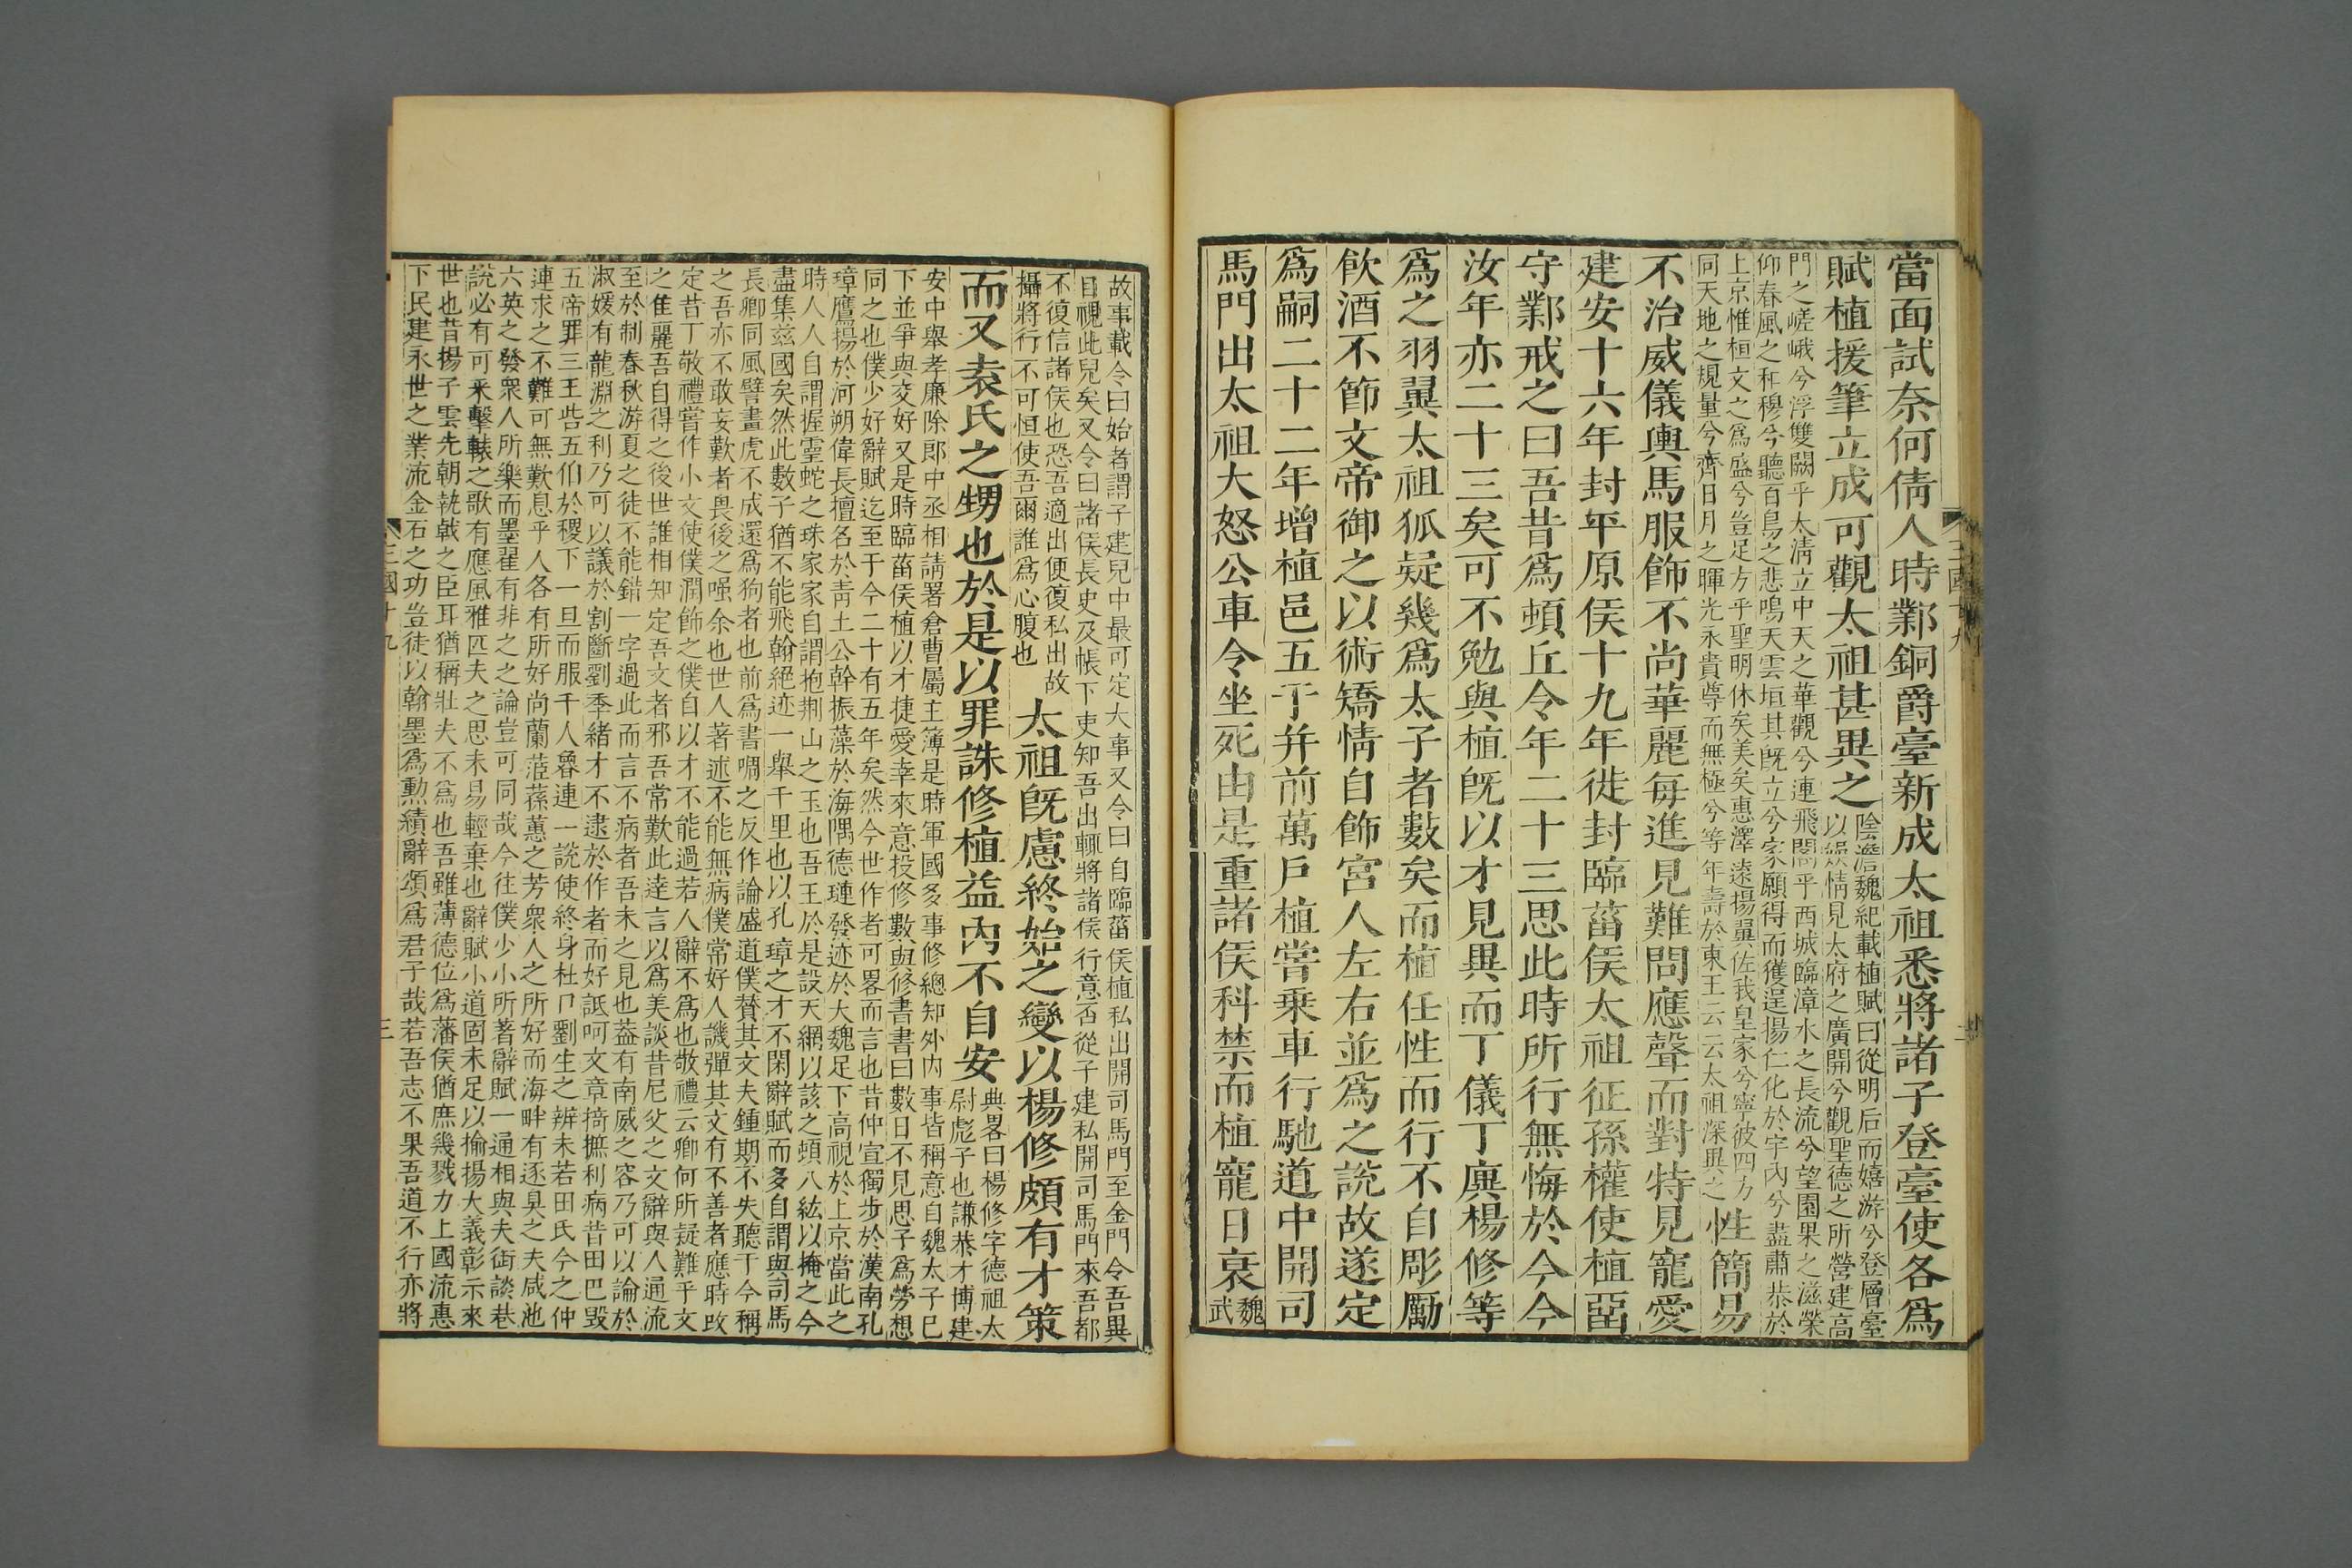 當面試奈何倩人時鄴銅爵臺新成太祖悉將諸子登臺使各爲
賦植援筆立成可觀太祖甚異之
陰澹魏紀載植賦曰從明后而嬉游兮登層臺
以娛情見太府之廣開兮觀聖德之所營建高
門之嵯峨兮浮雙闕乎太清立中天之華觀兮連飛閣乎西城臨漳水之長流兮望園果之滋榮
仰春風之和穆兮聽百鳥之悲鳴天雲垣其旣立兮家願得而獲逞揚仁化於宇內兮盡肅恭於
上京惟桓文之爲盛兮豈足方乎聖明休矣美矣惠澤遠揚翼佐我皇家兮寧彼四方
同天地之規量兮齊日月之暉光永貴尊而無極兮等年壽於東王云云太祖深異之
性簡易
不治威儀輿馬服飾不尚華麗每進見難問應聲而對特見寵愛
建安十六年封平原侯十九年徙封臨菑侯太祖征孫權使植留
守鄴戒之曰吾昔爲頓丘令年二十三思此時所行無悔於今今
汝年亦二十三矣可不勉與植旣以才見異而丁儀丁廙楊修等
爲之羽翼太祖狐疑幾爲太子者數矣而植任性而行不自彫勵
飲酒不節文帝御之以術矯情自飾宮人左右並爲之說故遂定
爲嗣二十二年增植邑五千并前萬戶植嘗乘車行馳道中開司
馬門出太祖大怒公車令坐死由是重諸侯科禁而植寵日衰
魏
武
故事載令曰始者謂子建兒中最可定大事又令曰自臨菑侯植私出開司馬門至金門令吾異
目視此兒矣又令曰諸侯長史及帳下吏知吾出輒將諸侯行意否從子建私開司馬門來吾都
不復信諸侯也恐吾適出便復私出故
攝將行不可恒使吾爾誰爲心腹也
太祖旣慮終始之變以楊修頗有才策
而又袁氏之甥也於是以罪誅修植益內不自安
典畧曰楊修字德祖太
尉彪子也謙恭才博建
安中舉孝廉除郎中丞相請署倉曹屬主簿是時軍國多事修總知外內事皆稱意自魏太子已
下並爭與交好又是時臨菑侯植以才捷愛幸來意投修數與修書書曰數日不見思子爲勞想
同之也僕少好辭賦迄至于今二十有五年矣然今世作者可畧而言也昔仲宣獨步於漢南孔
璋鷹揚於河朔偉長擅名於靑土公幹振藻於海隅德璉發迹於大魏足下高視於上京當此之
時人人自謂握靈蛇之珠家家自謂抱荆山之玉也吾王於是設天網以該之頓八紘以掩之今
盡集茲國矣然此數子猶不能飛翰絕迹一舉千里也以孔璋之才不閑辭賦而多自謂與司馬
長卿同風譬畫虎不成還爲狗者也前爲書啁之反作論盛道僕贊其文夫鍾期不失聽于今稱
之吾亦不敢妄歎者畏後之嗤余也世人著述不能無病僕常好人譏彈其文有不善者應時改
定昔丁敬禮嘗作小文使僕潤飾之僕自以才不能過若人辭不爲也敬禮云卿何所疑難乎文
之佳麗吾自得之後世誰相知定吾文者邪吾常歎此達言以爲美談昔尼父之文辭與人通流
至於制春秋游夏之徒不能錯一字過此而言不病者吾未之見也蓋有南威之容乃可以論於
淑媛有龍淵之利乃可以議於割斷劉季緖才不逮於作者而好詆呵文章掎摭利病昔田巴毀
五帝罪三王呰五伯於稷下一旦而服千人魯連一說使終身杜口劉生之辨未若田氏今之仲
連求之不難可無歎息乎人各有所好尚蘭茝蓀蕙之芳衆人之所好而海畔有逐臭之夫咸池
六英之發衆人所樂而墨翟有非之之論豈可同哉今往僕少小所著辭賦一通相與夫街談巷
說必有可采擊轅之歌有應風雅匹夫之思未易輕棄也辭賦小道固未足以揄揚大義彰示來
世也昔揚子雲先朝執戟之臣耳猶稱壯夫不爲也吾雖薄德位爲藩侯猶庶幾戮力上國流惠
下民建永世之業流金石之功豈徒以翰墨爲勳績辭頌爲君子哉若吾志不果吾道不行亦將
三國十九
三